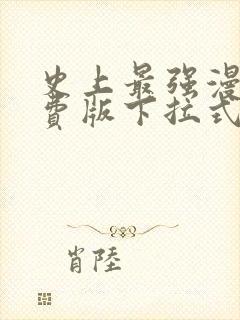 史上最强漫
费版下拉式
肖陸